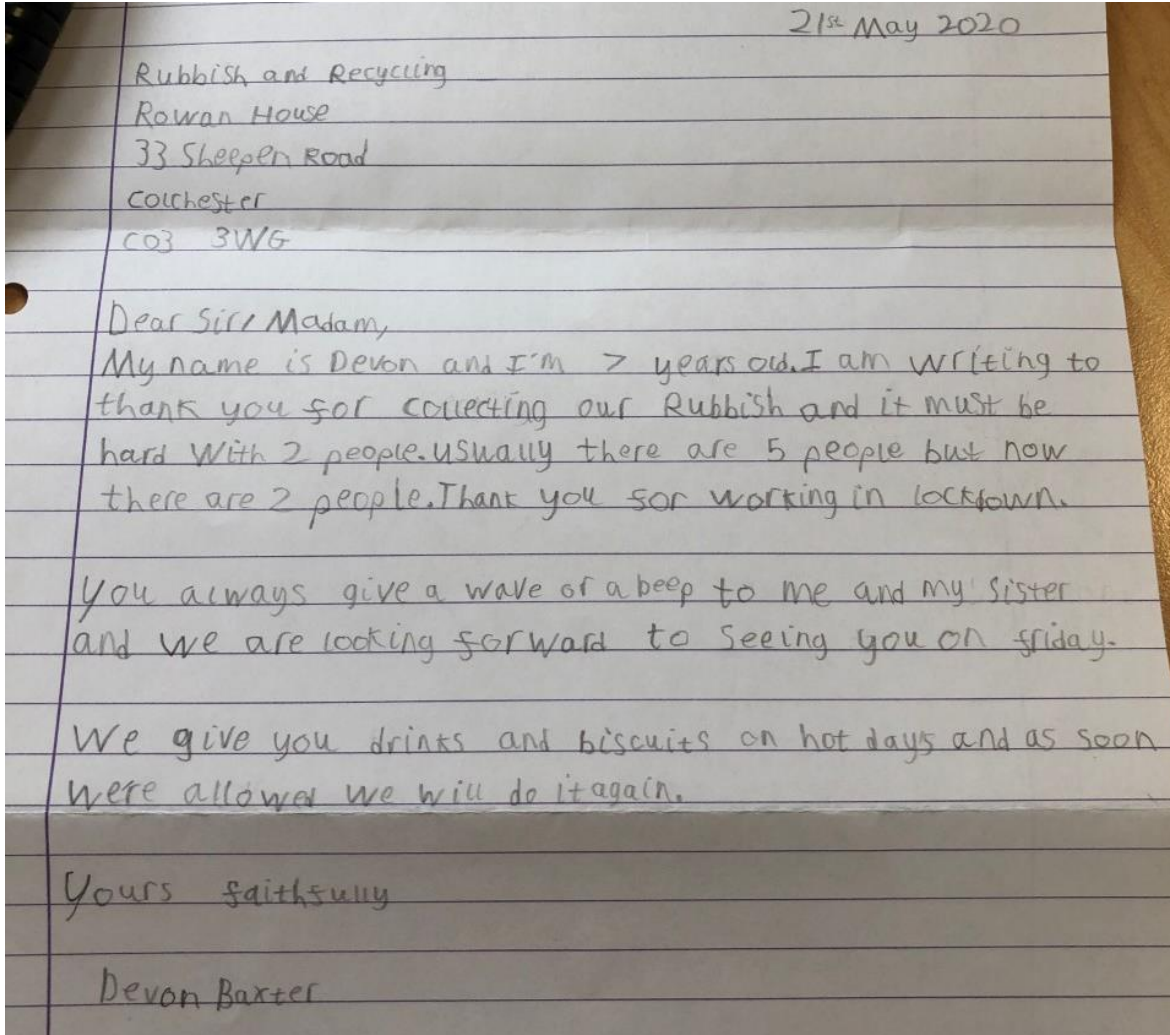 21st May 2020
Rubbish and Recycling
Rowan House
33 Sheepen Road
Colchester
CO3 3WG
Dear Sir/Madam,
My name is Devon and I'm 7 years old. I am writing to
thank you for collecting our Rubbish and it must be
hard With 2 people. usually there are 5 people but now
there are 2 people. Thank you for working in lockdown.
You always give a wave or a beep to me and my sister
and we are looking forward to seeing you on friday.
We give you drinks and biscuits on hot days and as soon
were allowed we will do it again.
Yours faithfully
Devon Baxter